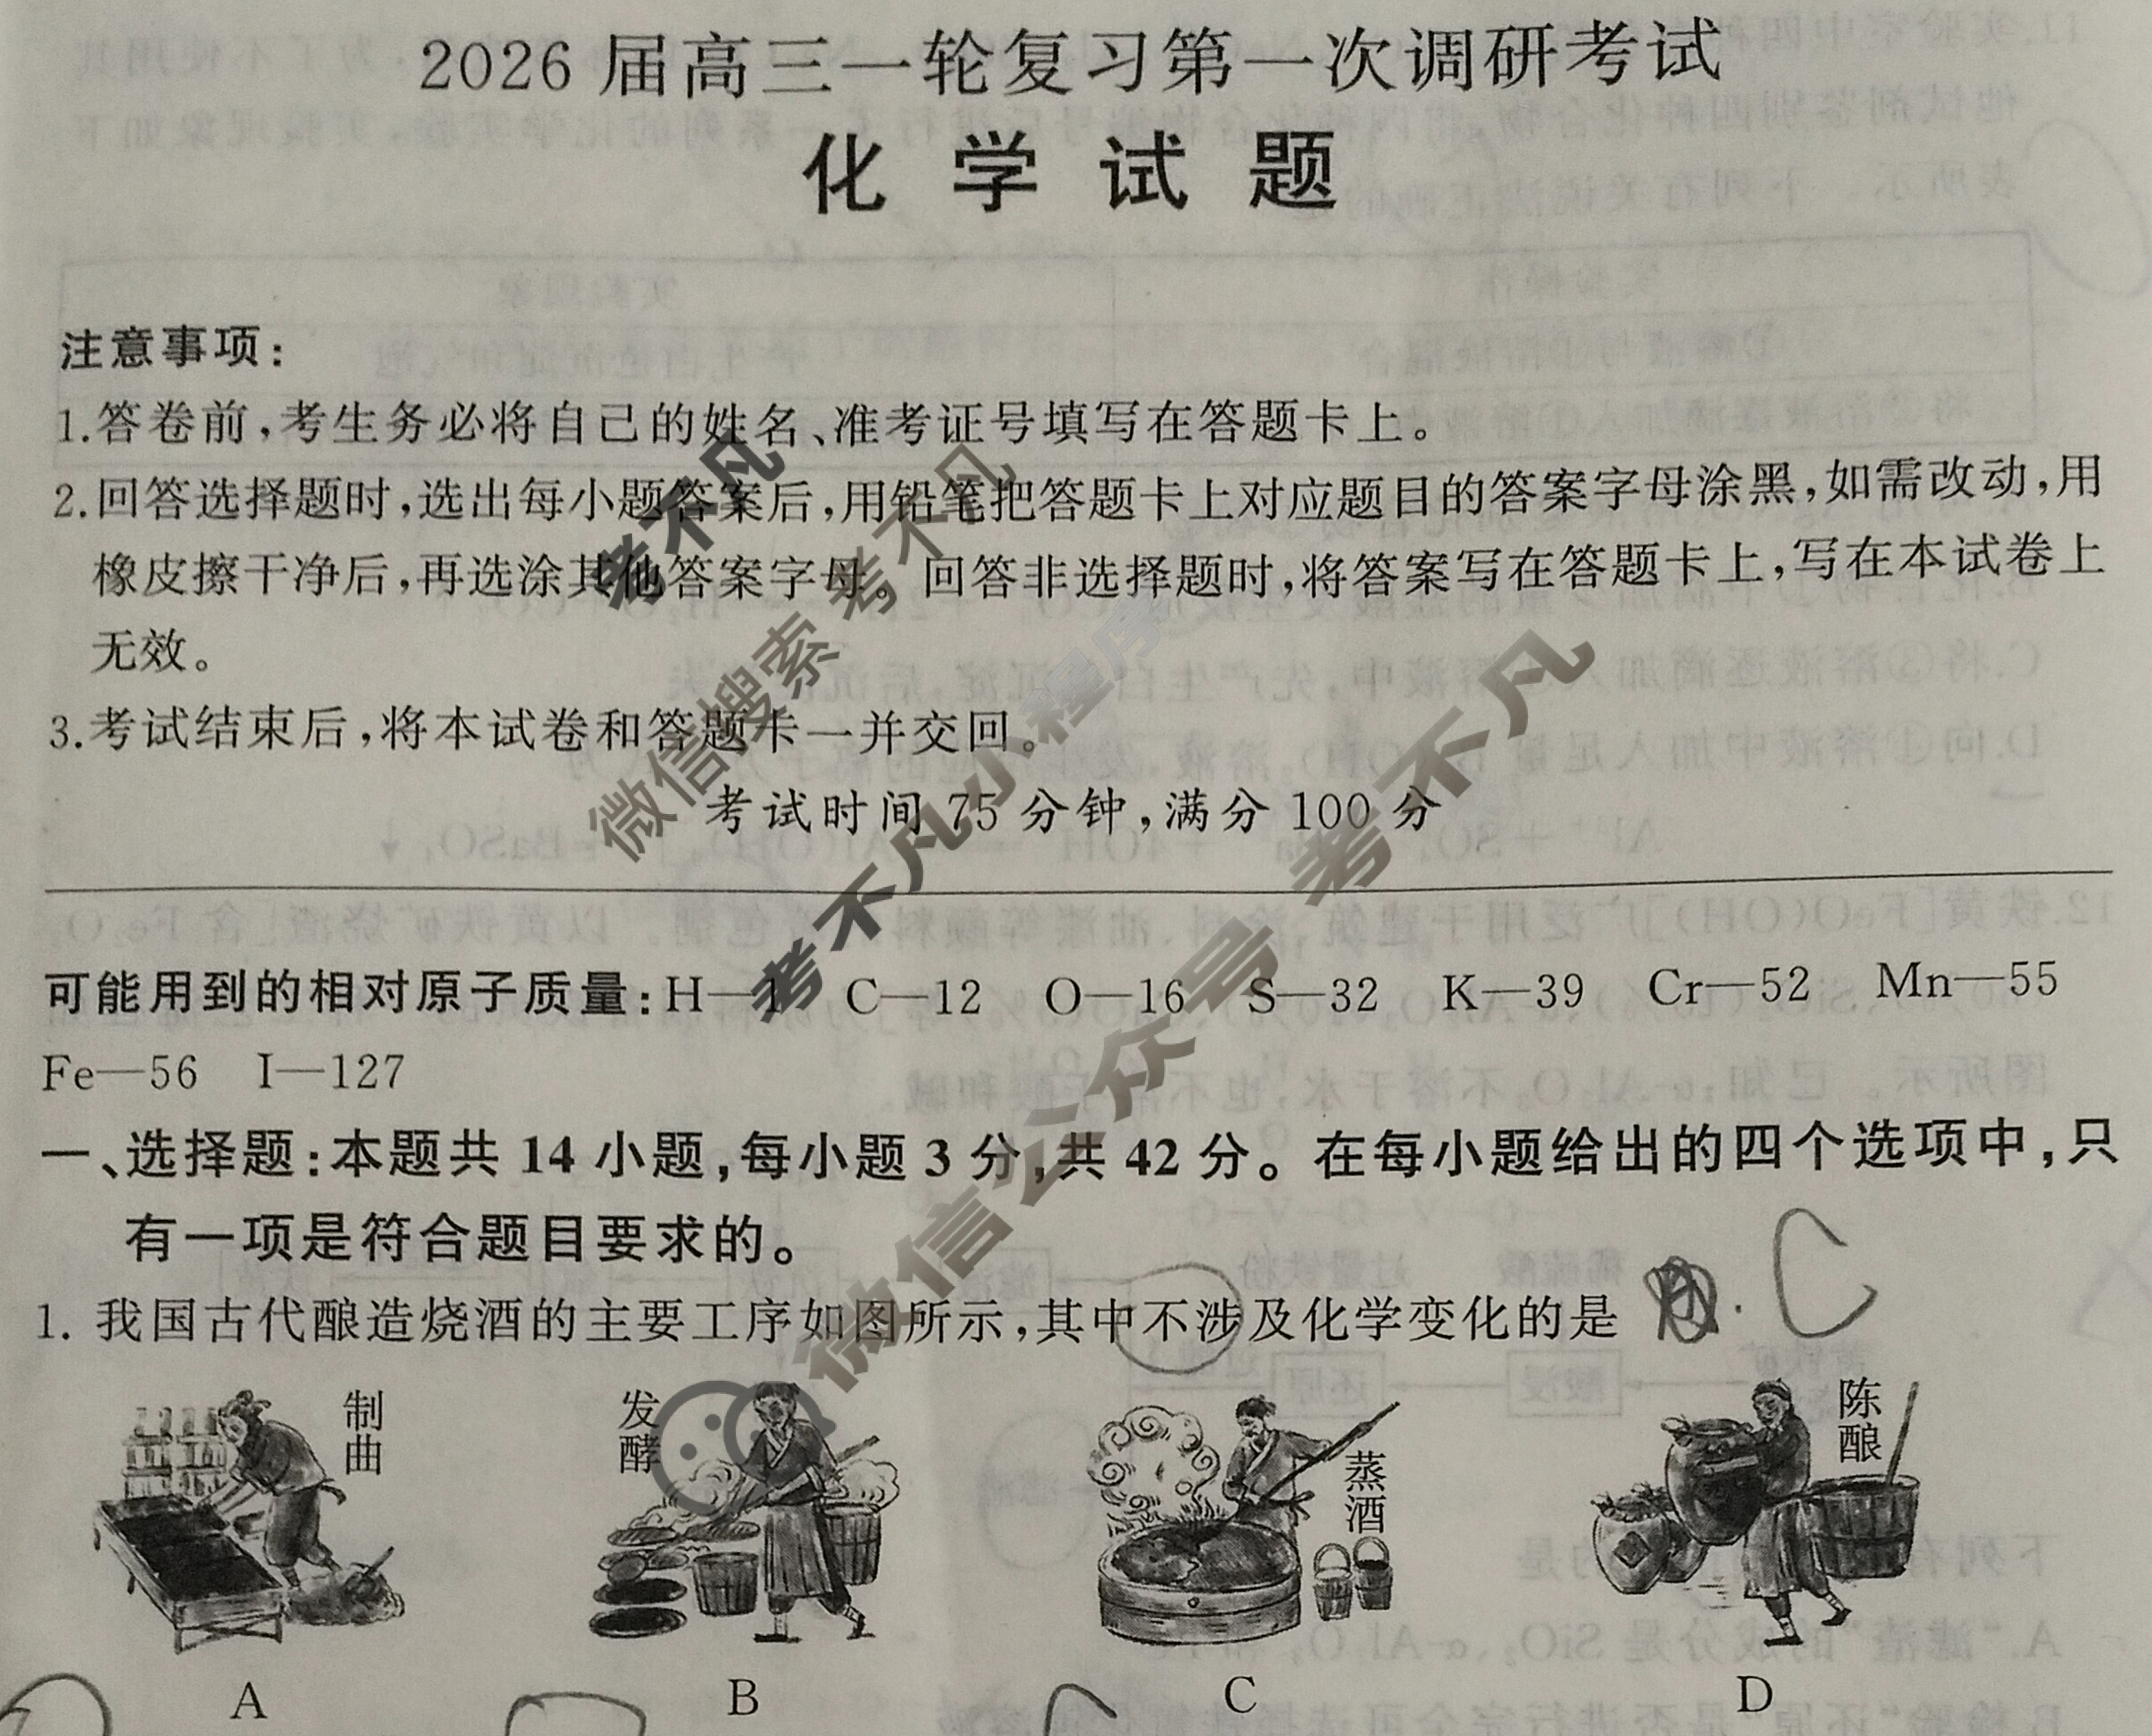 2026 届高三一轮复习第一次调研考试
化学试题
注意事项：
1.答卷前，考生务必将自己的姓名、准考证号填写在答题卡上。
2.回答选择题时，选出每小题答案后，用铅笔把答题卡上对应题目的答案字母涂黑，如需改动，用
橡皮擦干净后，再选涂其他答案字母。回答非选择题时，将答案写在答题卡上，写在本试卷上
无效。
3.考试结束后，将本试卷和答题卡一并交回。
考试时间 75 分钟，满分 100 分
可能用到的相对原子质量：H—1 C—12 O—16 S—32 K—39 Cr—52 Mn—55
Fe—56 I—127
一、选择题：本题共 14 小题，每小题 3 分，共 42 分。在每小题给出的四个选项中，只
有一项是符合题目要求的。
1. 我国古代酿造烧酒的主要工序如图所示，其中不涉及化学变化的是 C
制曲
发酵
蒸酒
陈酿
A B C D
考不凡
微信搜索 考不凡
考不凡小程序
微信公众号 考不凡